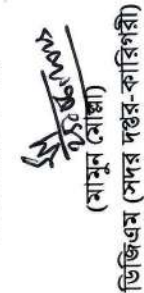 (মামুন মোল্লা)
ডিজিএম (সদর দপ্তর-কারিগরী)